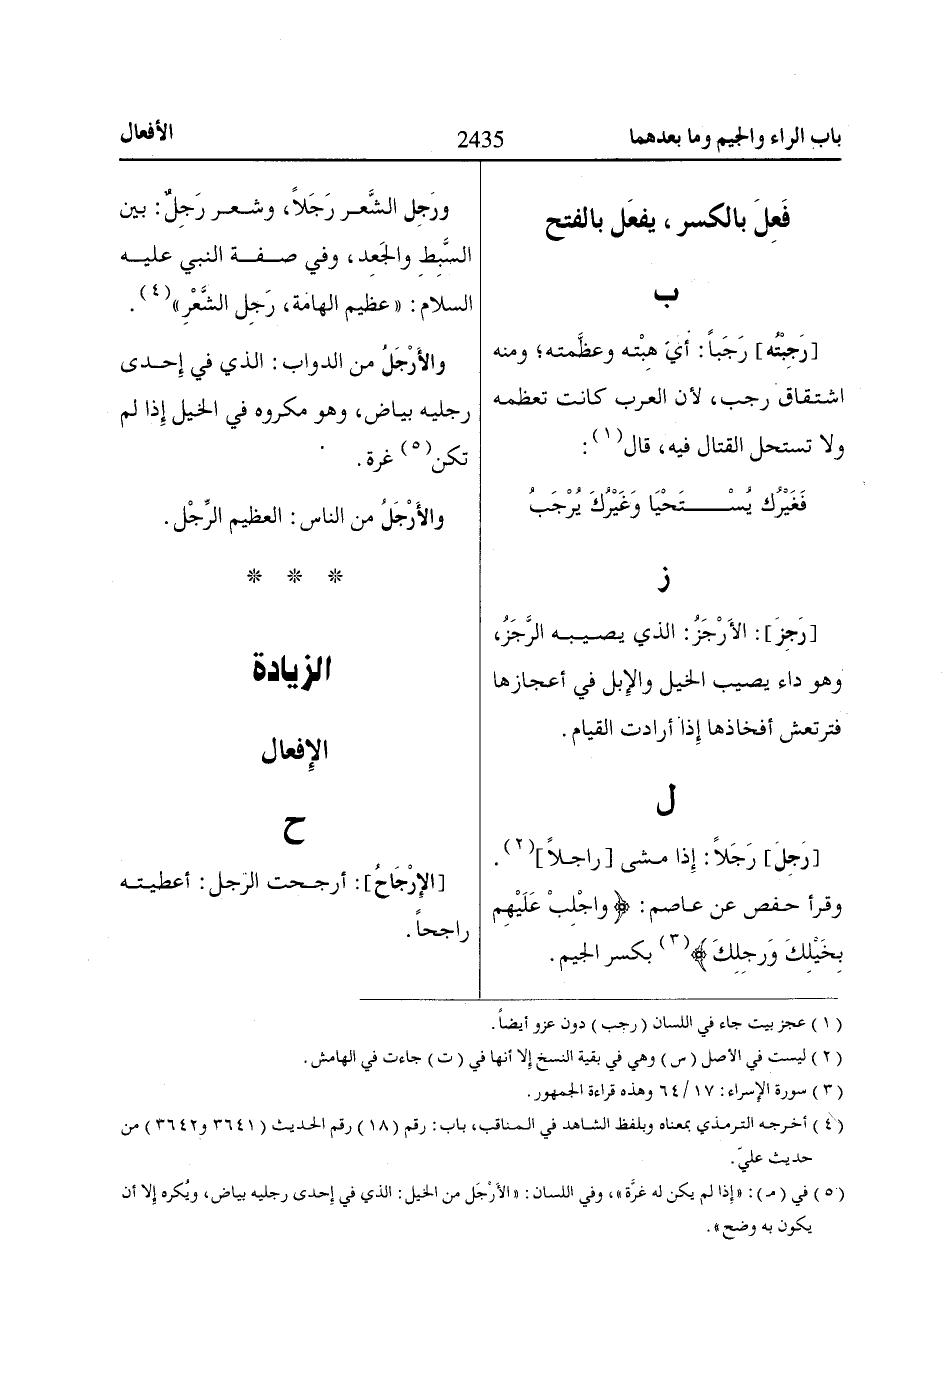 باب الراء والجيم وما بعدهما
2435
الأفعال
فَعِلَ بالكسر ، يفعَل بالفتح
ب
[رَجِبْتُه] رَجَباً: أيَ هِبْته وعظَّمته؛ ومنه
اشتقاق رجب، لأن العرب كانت تعظمه
ولا تستحل القتال فيه، قال(١):
فَغَيْرُك يُسْـــتَحْيَا وَغَيْرُكَ يُرْجَبُ
ز
[رَجِزَ]: الأَرْجَزُ: الذي يصيبه الرَّجَزُ،
وهو داء يصيب الخيل والإبل في أعجازها
فترتعش أفخاذها إذا أرادت القيام.
ل
[رَجِلَ] رَجَلاً: إذا مشى [راجلاً](٢).
وقرأ حفص عن عاصم: ﴿وأجْلِبْ عَلَيْهِم
بِخَيْلِكَ وَرجِلِكَ﴾(٣) بكسر الجيم.
ورَجِل الشَّعر رَجَلاً، وشعر رَجِلٌ: بين
السَّبِط والجَعِد، وفي صفة النبي عليه
السلام: «عظيم الهامَة، رَجِل الشَّعْرِ»(٤).
والأَرْجَلُ من الدواب: الذي في إحدى
رجليه بياض، وهو مكروه في الخيل إذا لم
تكن(٥) غرة.
والأَرْجَلُ من الناس: العظيم الرِّجْل.
* * *
الزيادة
الإفعال
ح
[الإرْجَاحُ]: أرجحت الرّجل: أعطيته
راجحاً.
(١) عجز بيت جاء في اللسان (رجب) دون عزو أيضاً.
(٢) ليست في الأصل (س) وهي في بقية النسخ إلا أنها في (ت) جاءت في الهامش.
(٣) سورة الإسراء: ٦٤/١٧ وهذه قراءة الجمهور.
(٤) أخرجه الترمذي بمعناه وبلفظ الشاهد في المناقب، باب: رقم (١٨) رقم الحديث (٣٦٤١ و٣٦٤٢) من
حديث عليّ.
(٥) في (مـ): «إذا لم يكن له غرَّة»، وفي اللسان: «الأرْجَل من الخيل: الذي في إحدى رجليه بياض، ويُكره إلا أن
يكون به وضح».